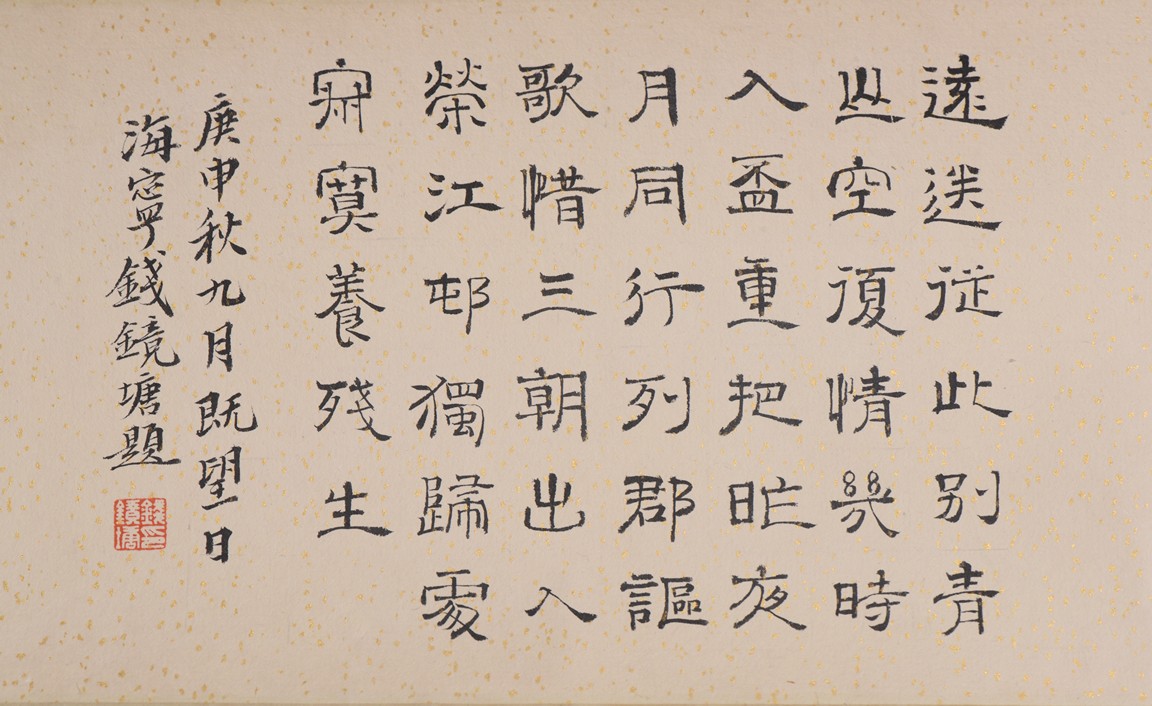 遠送従此别青
山空復情幾時
入盃重把昨夜
月同行列郡謳
歌惜三朝出入
榮江邨獨歸處
寂寞養殘生
庚申秋九月既望日
海寧錢鏡塘題
錢印鏡塘